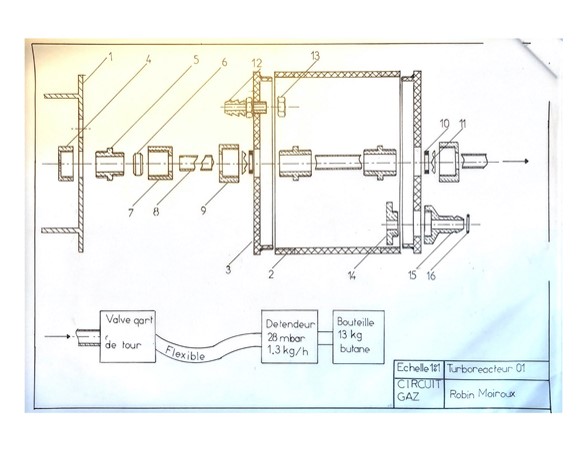 1
4
5
6
12
13
10
11
7
8
9
3
2
14
15
16
Valve qart
de tour
Flexible
Detendeur
28 mbar
1,3 kg/h
Bouteille
13 kg
butane
Echelle 1:1
Turboreacteur 01
CIRCUIT
GAZ
Robin Moiroux